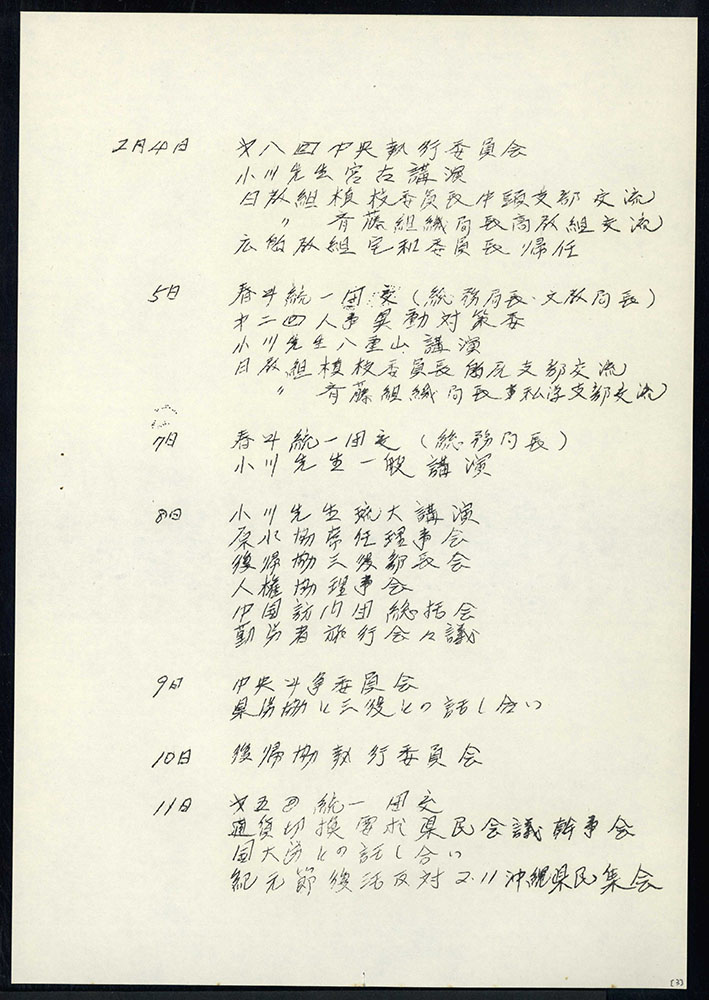 2月4日 才八回中央執行委員会
小川先生宮古講演
日教組槙枝委員長中頭支部交流
〃 斉藤組織局長高教組交流
広教組宅和委員長帰任
5日 春斗統一団交（総務局長・文教局長）
才二回人事異動対策委
小川先生八重山講演
日教組槙枝委員長島尻支部交流
〃 斉藤組織局長私学支部交流
7日 春斗統一団交（総務局長）
小川先生一般講演
8日 小川先生琉大講演
原水協常任理事会
復帰協三役部長会
人権協理事会
中国訪問団総括会
勤労者旅行会々議
9日 中央斗争委員会
県労協と三役との話し合い
10日 復帰協執行委員会
11日 才五回統一団交
通貨切換要求県民会議幹事会
国大労との話し合い
紀元節復活反対2.11沖縄県民集会
[3]